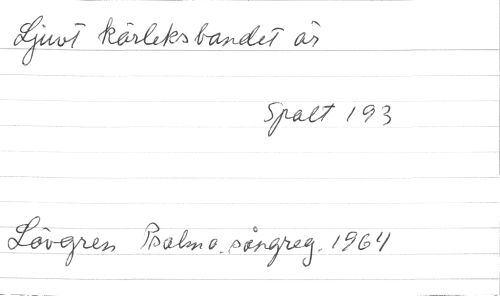 Ljuvt kärleksbandet är
Spalt 193
Lövgren Psalmo. sångreg. 1964